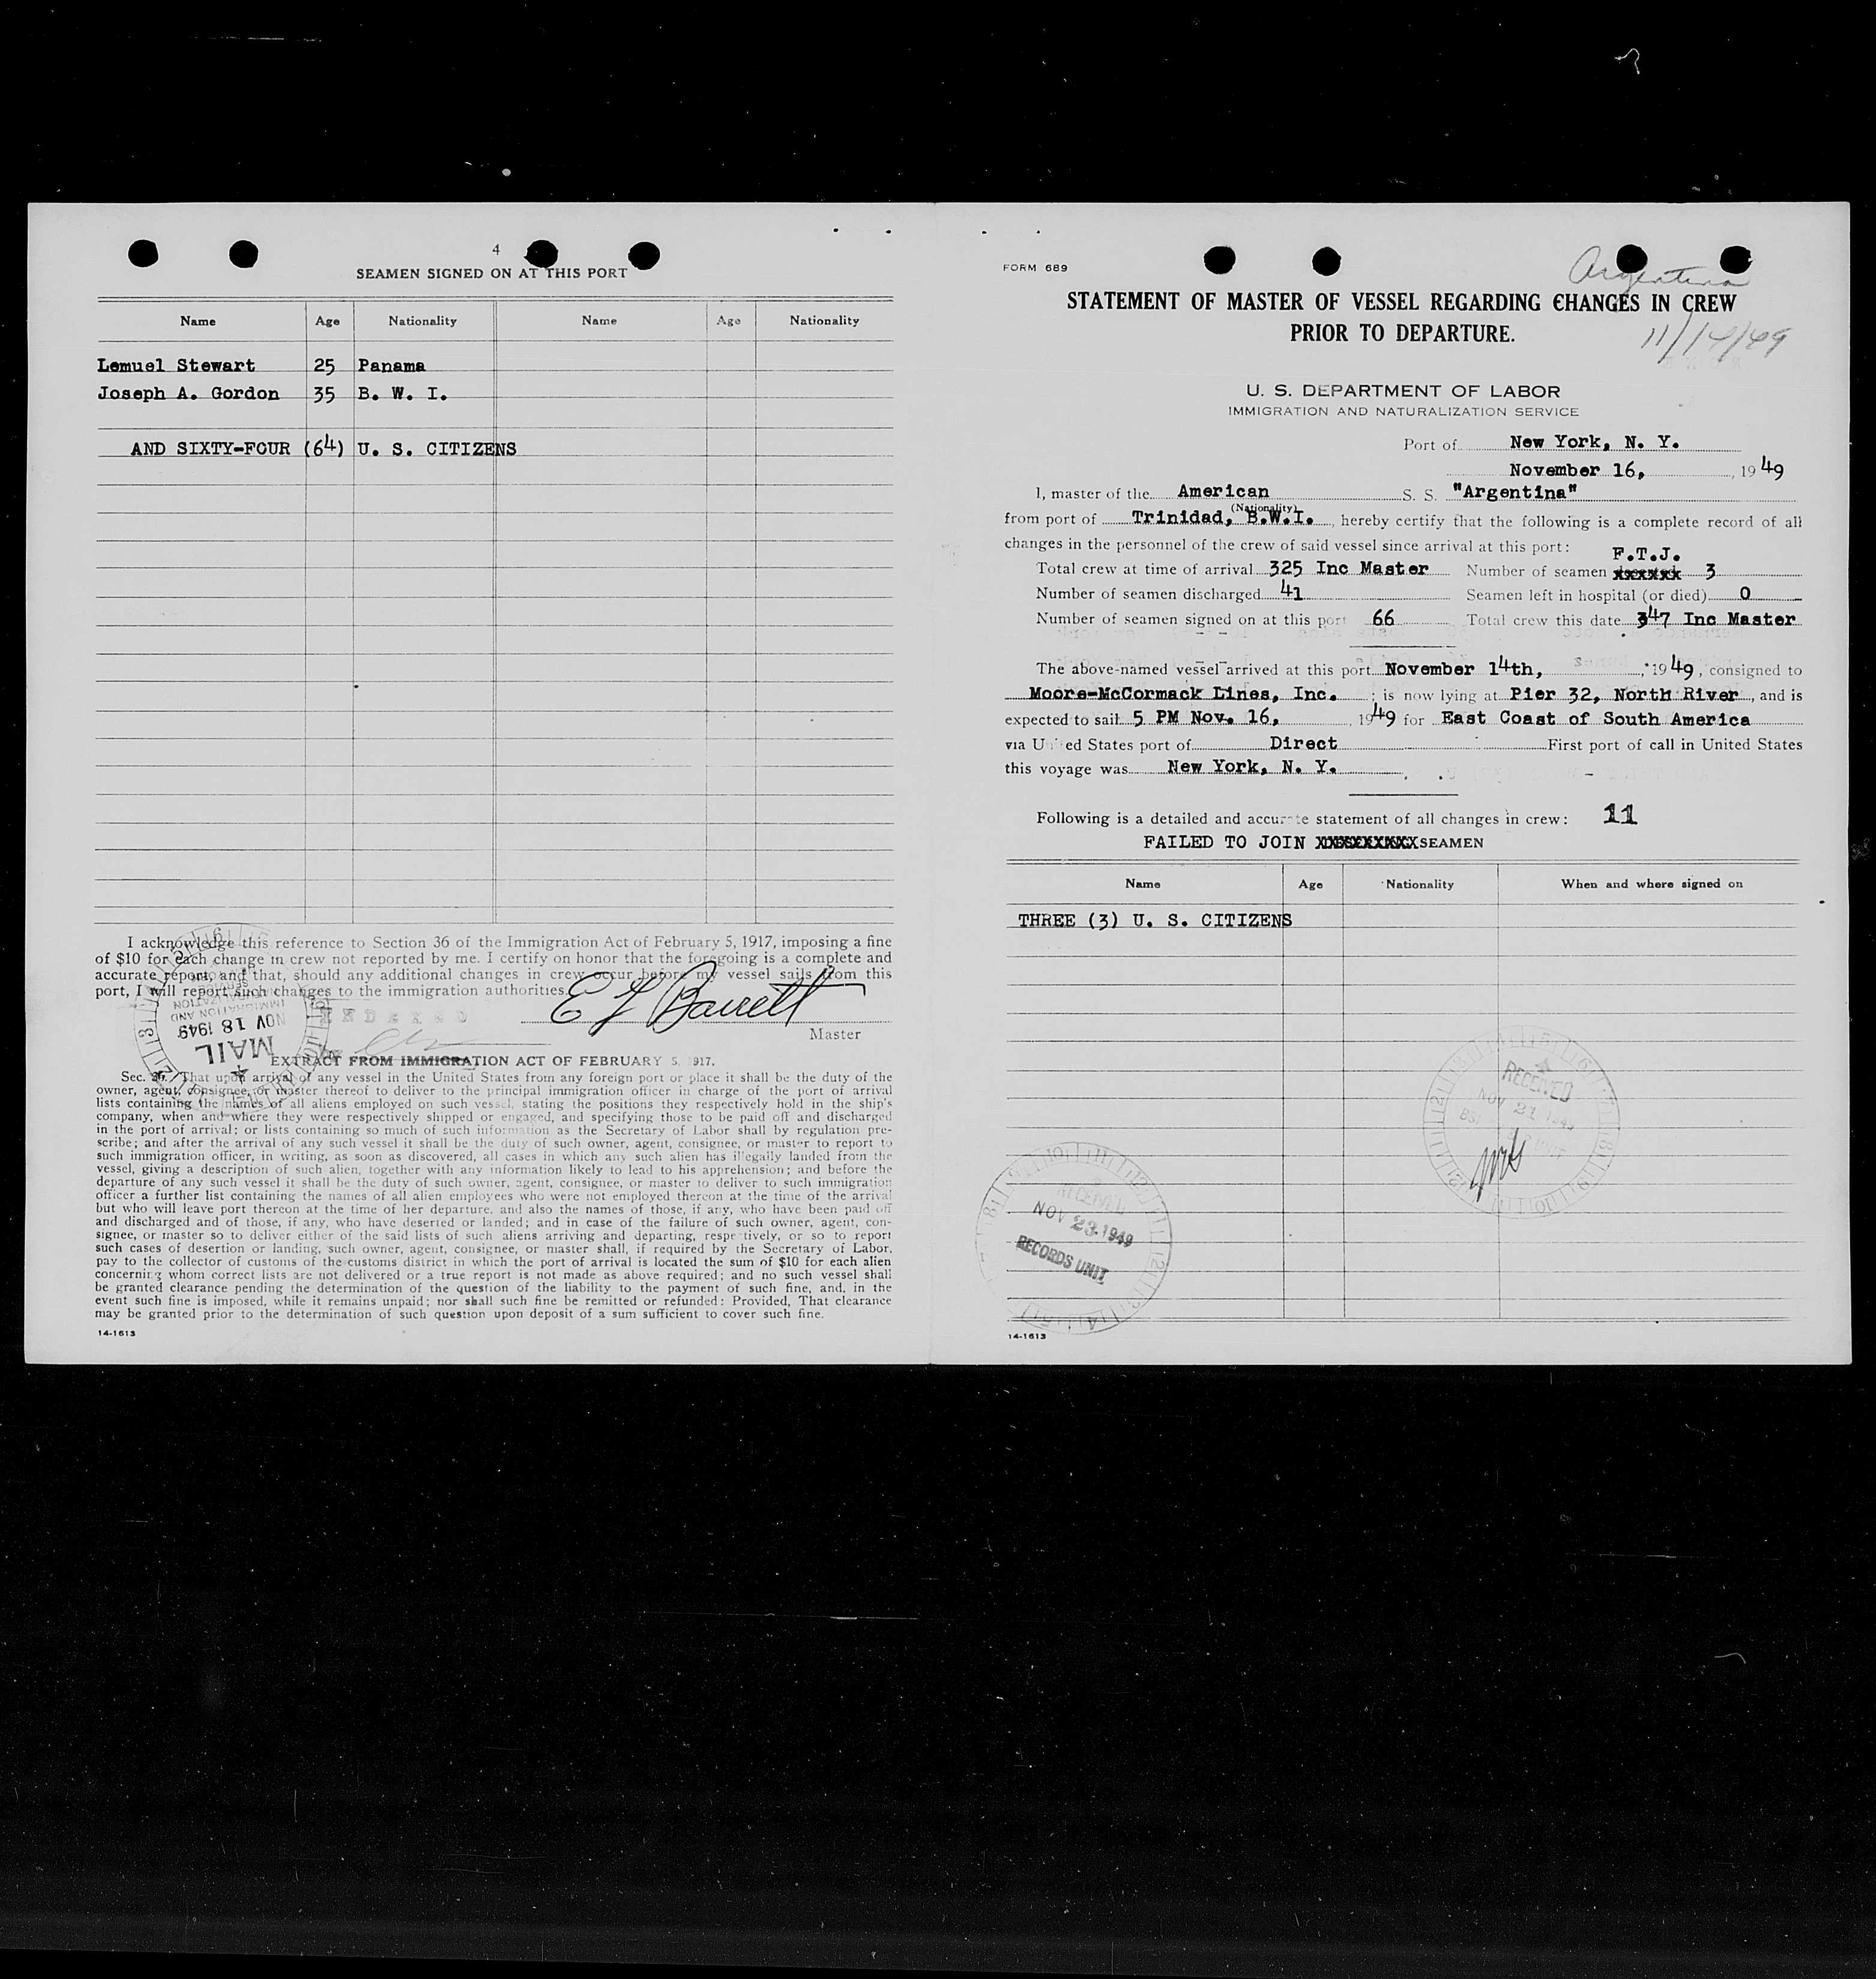 4
SEAMEN SIGNED ON AT THIS PORT
Name Age Nationality Name Age Nationality
Lemuel Stewart 25 Panama
Joseph A. Gordon 35 B. W. I.
AND SIXTY-FOUR (64) U. S. CITIZENS
I acknowledge this reference to Section 36 of the Immigration Act of February 5, 1917, imposing a fine
of $10 for each change in crew not reported by me. I certify on honor that the foregoing is a complete and
accurate report, and that, should any additional changes in crew occur before my vessel sails from this
port, I will report such changes to the immigration authorities.
E Barrett
Master
INDEXED
IMMIGRATION AND
NOV 18 1949
MAIL
EXTRACT FROM IMMIGRATION ACT OF FEBRUARY 5, 1917.
Sec. 36. That upon arrival of any vessel in the United States from any foreign port or place it shall be the duty of the
owner, agent, consignee, or master thereof to deliver to the principal immigration officer in charge of the port of arrival
lists containing the names of all aliens employed on such vessel, stating the positions they respectively hold in the ship's
company, when and where they were respectively shipped or engaged, and specifying those to be paid off and discharged
in the port of arrival; or lists containing so much of such information as the Secretary of Labor shall by regulation pre-
scribe; and after the arrival of any such vessel it shall be the duty of such owner, agent, consignee, or master to report to
such immigration officer, in writing, as soon as discovered, all cases in which any such alien has illegally landed from the
vessel, giving a description of such alien, together with any information likely to lead to his apprehension; and before the
departure of any such vessel it shall be the duty of such owner, agent, consignee, or master to deliver to such immigration
officer a further list containing the names of all alien employees who were not employed thereon at the time of the arrival
but who will leave port thereon at the time of her departure, and also the names of those, if any, who have been paid off
and discharged and of those, if any, who have deserted or landed; and in case of the failure of such owner, agent, con-
signee, or master so to deliver either of the said lists of such aliens arriving and departing, respectively, or so to report
such cases of desertion or landing, such owner, agent, consignee, or master shall, if required by the Secretary of Labor,
pay to the collector of customs of the customs district in which the port of arrival is located the sum of $10 for each alien
concerning whom correct lists are not delivered or a true report is not made as above required; and no such vessel shall
be granted clearance pending the determination of the question of the liability to the payment of such fine, and, in the
event such fine is imposed, while it remains unpaid; nor shall such fine be remitted or refunded: Provided, That clearance
may be granted prior to the determination of such question upon deposit of a sum sufficient to cover such fine.
14-1613
FORM 689
Argentina
STATEMENT OF MASTER OF VESSEL REGARDING CHANGES IN CREW
PRIOR TO DEPARTURE.
11/14/49
U. S. DEPARTMENT OF LABOR
IMMIGRATION AND NATURALIZATION SERVICE
Port of New York, N. Y.
November 16, 1949
I, master of the American S. S. "Argentina"
(Nationality)
from port of Trinidad, B.W.I., hereby certify that the following is a complete record of all
changes in the personnel of the crew of said vessel since arrival at this port:
F.T.J.
Total crew at time of arrival 325 Inc Master Number of seamen xxxxxx 3
Number of seamen discharged 41 Seamen left in hospital (or died) 0
Number of seamen signed on at this port 66 Total crew this date 347 Inc Master
The above-named vessel arrived at this port November 14th, , 1949, consigned to
Moore-McCormack Lines, Inc. ; is now lying at Pier 32, North River, and is
expected to sail 5 PM Nov. 16, , 1949 for East Coast of South America
via United States port of Direct First port of call in United States
this voyage was New York, N. Y.
Following is a detailed and accurate statement of all changes in crew: 11
FAILED TO JOIN XXXXXXXXX SEAMEN
Name Age Nationality When and where signed on
THREE (3) U. S. CITIZENS
RECEIVED
NOV 21 1949
RECEIVED
NOV 23 1949
RECORDS UNIT
14-1613